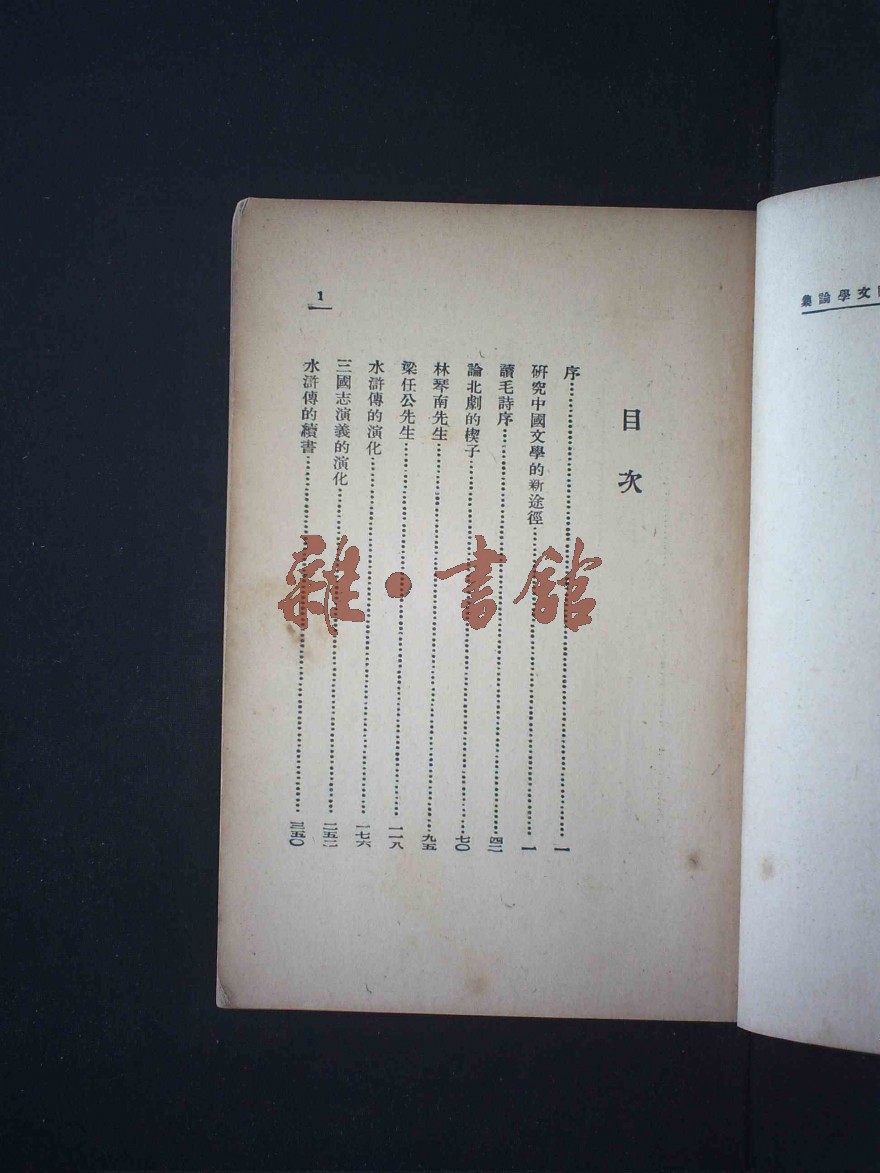 文學論集
目次
序……一
研究中國文學的新途徑……一
讀毛詩序……四二
論北劇的楔子……七〇
林琴南先生……九五
梁任公先生……一一八
水滸傳的演化……一七六
三國志演義的演化……二五二
水滸傳的續書……三五〇
1
雜·書館